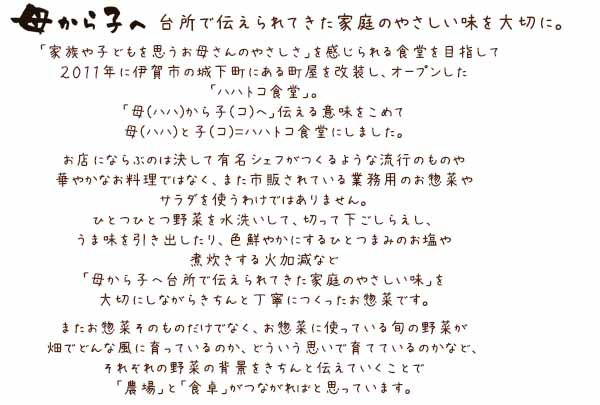 母から子へ 台所で伝えられてきた家庭のやさしい味を大切に。
「家族や子どもを思うお母さんのやさしさ」を感じられる食堂を目指して
2011年に伊賀市の城下町にある町屋を改装し、オープンした
「ハハトコ食堂」。
「母(ハハ)から子(コ)へ」伝える意味をこめて
母(ハハ)と子(コ)=ハハトコ食堂にしました。
お店にならぶのは決して有名シェフがつくるような流行のものや
華やかなお料理ではなく、また市販されている業務用のお惣菜や
サラダを使うわけではありません。
ひとつひとつ野菜を水洗いして、切って下ごしらえし、
うま味を引き出したり、色鮮やかにするひとつまみのお塩や
煮炊きする火加減など
「母から子へ台所で伝えられてきた家庭のやさしい味」を
大切にしながらきちんと丁寧につくったお惣菜です。
またお惣菜そのものだけでなく、お惣菜に使っている旬の野菜が
畑でどんな風に育っているのか、どういう思いで育てているのかなど、
それぞれの野菜の背景をきちんと伝えていくことで
「農場」と「食卓」がつながればと思っています。